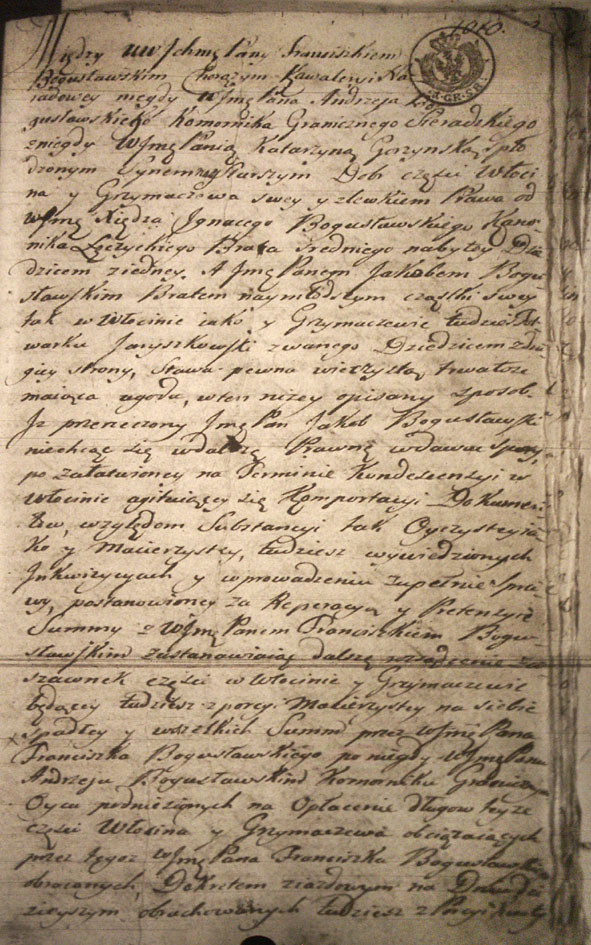 1010.
GR.SR.
Między WWJchmę Pany Franciszkiem
Bogusławskim Chorążym Kawaleryi Na
radowey niegdy WJmę Pana Andrzeja Bo
gusławskiego Komornika Granicznego Sieradzkiego
zniegdy WJmę Panią Katarzyną Gorzynską spło
dzonym Synem Starszym Dobr części Włoci
na y Grzymaczewa swey y zlewkiem Prawa od
WJmę Xiędza Jgnacego Bogusławskiego Kano
nika Łęczyckiego Brata średniego nabytey Dzie
dzicem ziedney. A Jmę Panem Jakobem Bogu
sławskim Bratem naymłodszym cząstki swey
tak w Włocinie iako y Grzymaczewie tudziesz
warku Jaryszkowski zwanego Dziedzicem zdru
giey strony, Stawa pewna wieczysta trwałosc
maiąca ugoda, wten niżey opisany sposob.
Jz przerzeczony Jmę Pan Jakob Bogusławski
niechcąc się wdalszą Prawną wdawac sporę,
po załatwioney na Terminie Kondescensyi w
Włocinie agituiącey się Komportacyi Dokumen
tow, względem Substancyi tak Oyczystey ia
ko y Macierzystey, tudziesz wywiedzionych
Jnkwizycyach y wprowadzeniu zupełnie Spra
wy, postanowioney za Reperacyą y Pretensyie
Summy z WJmę Panem Franciszkiem Bogu
sławskim zustanawiaiąc dalsze
szawnek części w Włocinie y Grzymaczewie
będącey tudziesz zporcyi Macierzystey na siebie
spadłey y wszelkich Summ przez WJmę Pana
Franciszka Bogusławskiego po niegdy WJmę Panu
Andrzeju Bogusławskim Komorniku Graniczn
Oycu podniesionych na Opłacenie długow teyze
części Włocina y Grzymaczewa obciążaiących
przez tegoz WJmę Pana Franciszka Bogusławsk
obroconych, Dekretem ziazdowym na
obrachowanych tudziesz z Porcyi